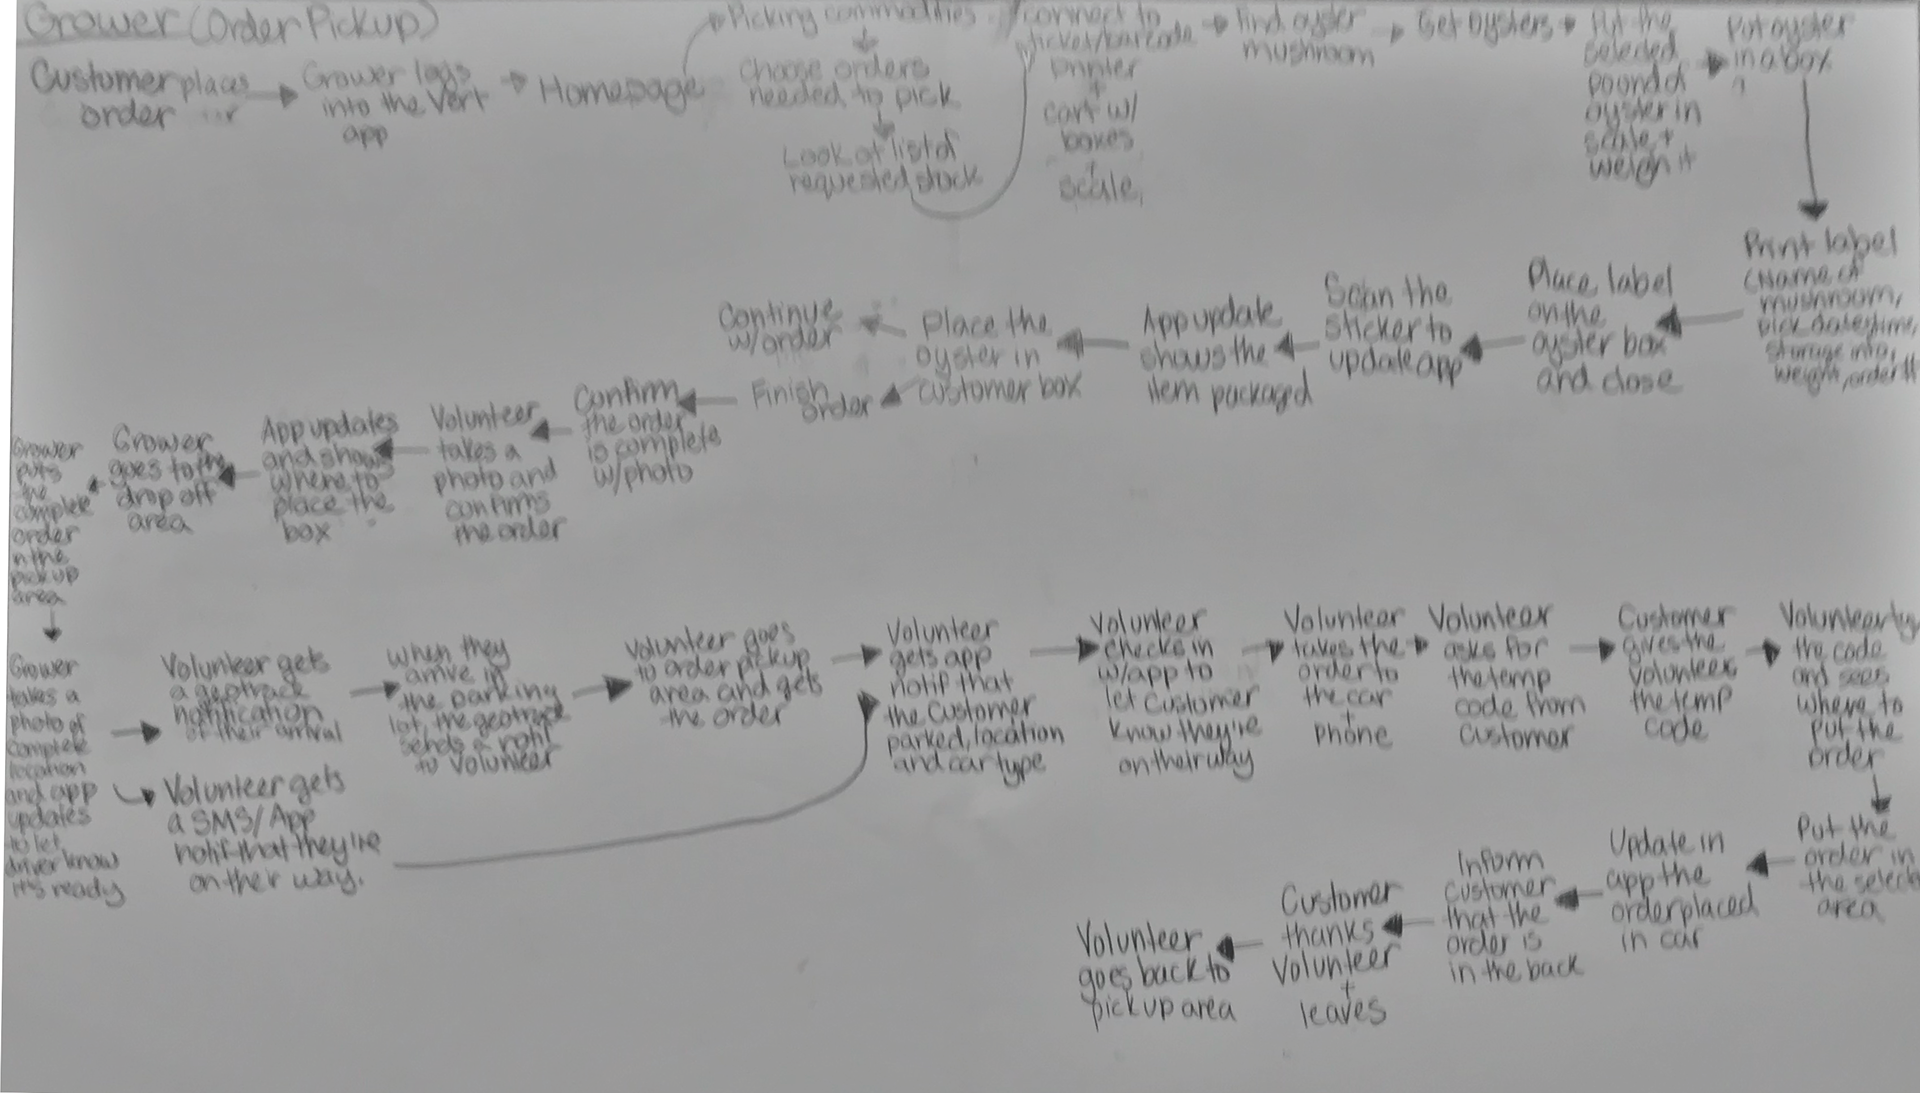 Grower (Order Pickup)
Customer places
order
Grower logs
into the Vert
app
Homepage
Picking commodities
Choose orders
needed to pick
Look at list of
requested stock
connect to
ticket/barcode
printer
+
cart w/
boxes
+
scale
Find oyster
mushroom
Get oysters
Put the
selected
pound of
oyster in
scale +
weigh it
Put oyster
in a box
Print label
(Name of
mushroom,
pick date/time,
storage info,
weight, order #
Place label
on the
oyster box
and close
Scan the
sticker to
update app
App update
shows the
item packaged
Place the
oyster in
customer box
Continue
w/order
Finish
order
Confirm
the order
is complete
w/photo
Volunteer
takes a
photo and
confirms
the order
App updates
and shows
where to
place the
box
Grower
goes to the
drop off
area
Grower
puts
the
complete
order
in the
pickup
area
Grower
takes a
photo of
complete
location
and app
updates
to let
driver know
it's ready
Volunteer gets
a geotrack
notification
of their arrival
Volunteer gets
a SMS/App
notif that they're
on their way.
When they
arrive in
the parking
lot, the geotrack
sends a notif
to Volunteer
Volunteer goes
to order pickup
area and gets
the order
Volunteer
gets app
notif that
the Customer
parked, location
and car type
Volunteer
checks in
w/app to
let Customer
know they're
on their way
Volunteer
takes the
order to
the car
+
phone
Volunteer
asks for
the temp
code from
customer
Customer
gives the
volunteer
the temp
code
Volunteer
the code
and sees
where to
put the
order
Put the
order in
the
area
Update in
app the
order placed
in car
Inform
customer
that the
order is
in the back
Customer
thanks
Volunteer
+
leaves
Volunteer
goes back to
pickup area